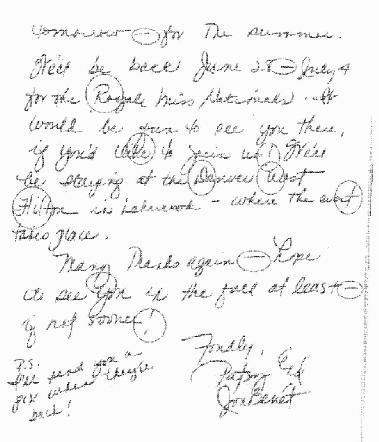 tomorrow — for the summer.
We'll be back June 28 — July 4
for the Royale Miss Nationals. It
would be fun to see you there,
if you'd like to join us! We'll
be staying at the Denver West
Hilton in Lakewood - where the event
takes place.
Many thanks again — Hope
to see you in the fall at least —
if not sooner!
Fondly,
Patsy &
JonBenét
P.S.
I'll send you a
pix when
back!